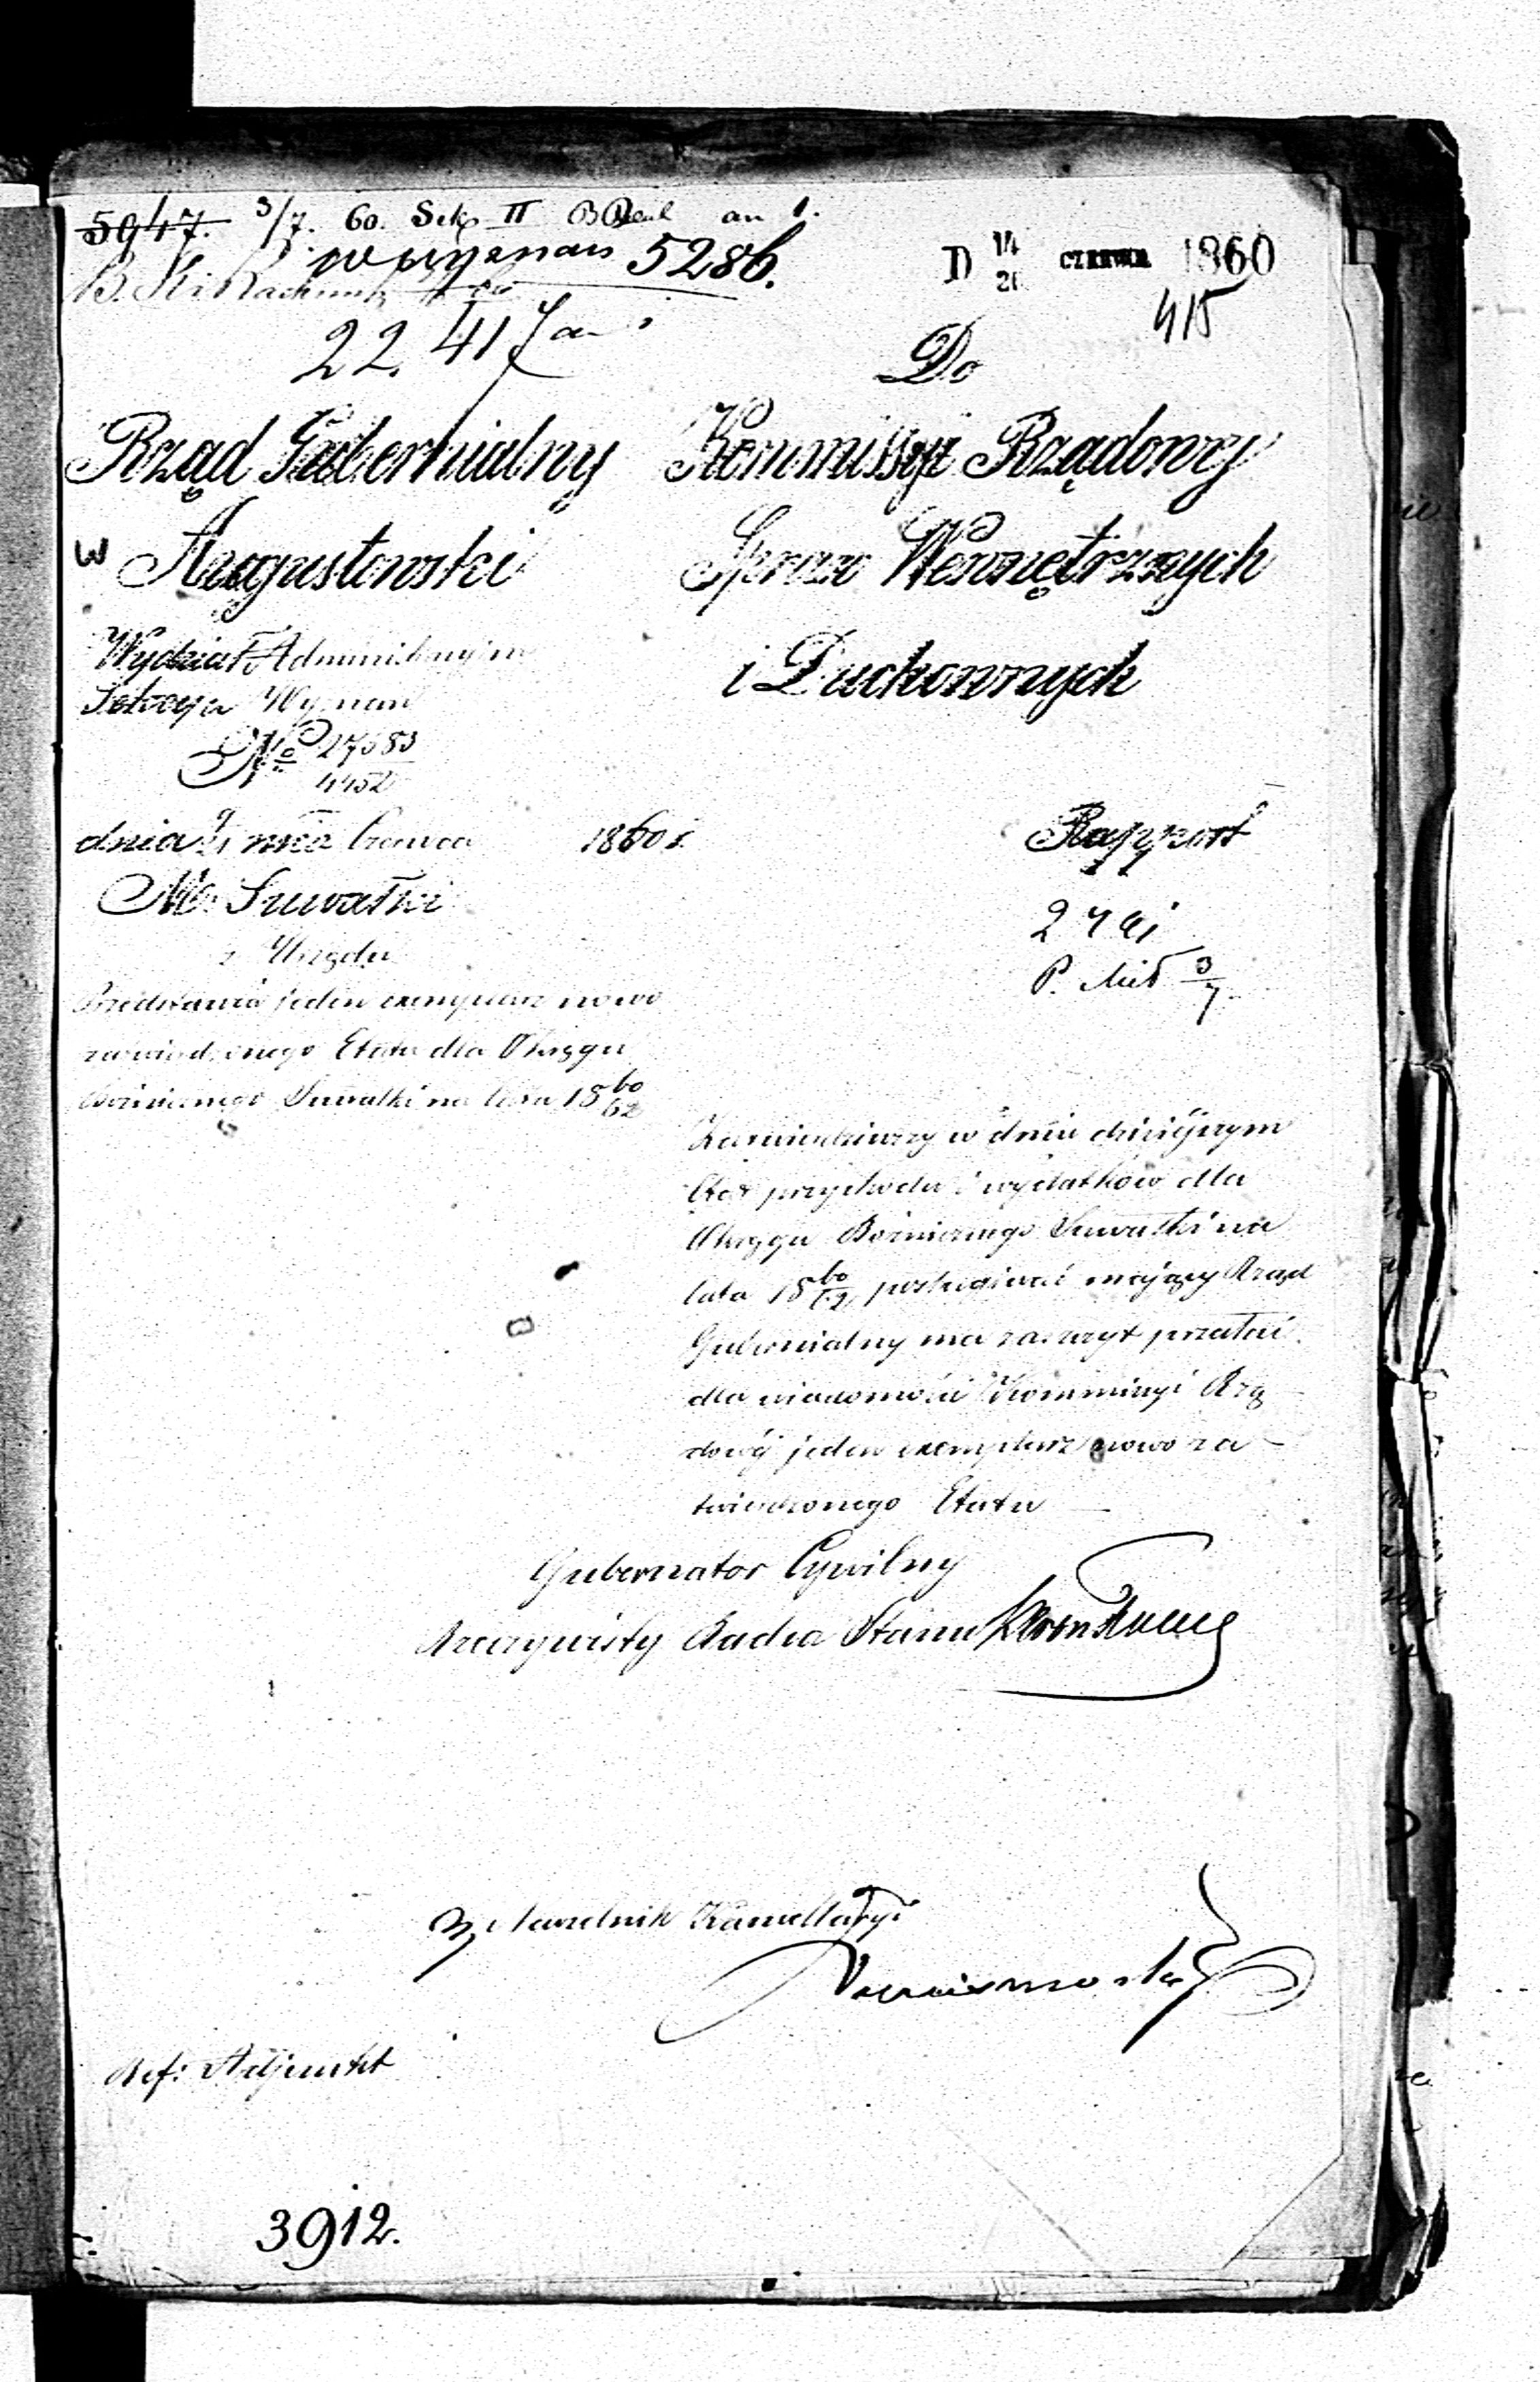 5947. 3/7. 60. Sek II an 1.
5286.
D 14/26 CZERWCA 1860
415
22. 417
Do
Rząd Gubernialny
Augustowski
Kommissyi Rządowej
Spraw Wewnętrznych
i Duchownych
Wydział Administracyjny
Sekcya Wyznań
No 27683
4452
dnia mca Czerwca 1860 r.
Rapport
M. Suwałki
z Urzędu
Przedstawia jeden exemplarz nowo
zatwierdzonego Etatu dla Okręgu
Bożniczego Suwałki na lata 1860/62
P. 3/7
Zatwierdziwszy w dniu dzisiejszym
Etat przychodu i wydatków dla
Okręgu Bożniczego Suwałki na
lata 1860/62 posługiwać mający Rząd
Gubernialny ma zaszczyt przesłać
dla wiadomości Kommissyi Rzą
dowej jeden exemplarz nowo za-
twierdzonego Etatu
Gubernator Cywilny
Rzeczywisty Radca Stanu
Naczelnik Kancellaryi
Ref: Adjunkt
3912.